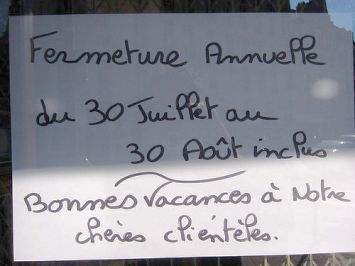 Fermeture Annuelle
du 30 Juillet au
30 Août inclus
Bonnes vacances à Notre
chères cliéntèles.